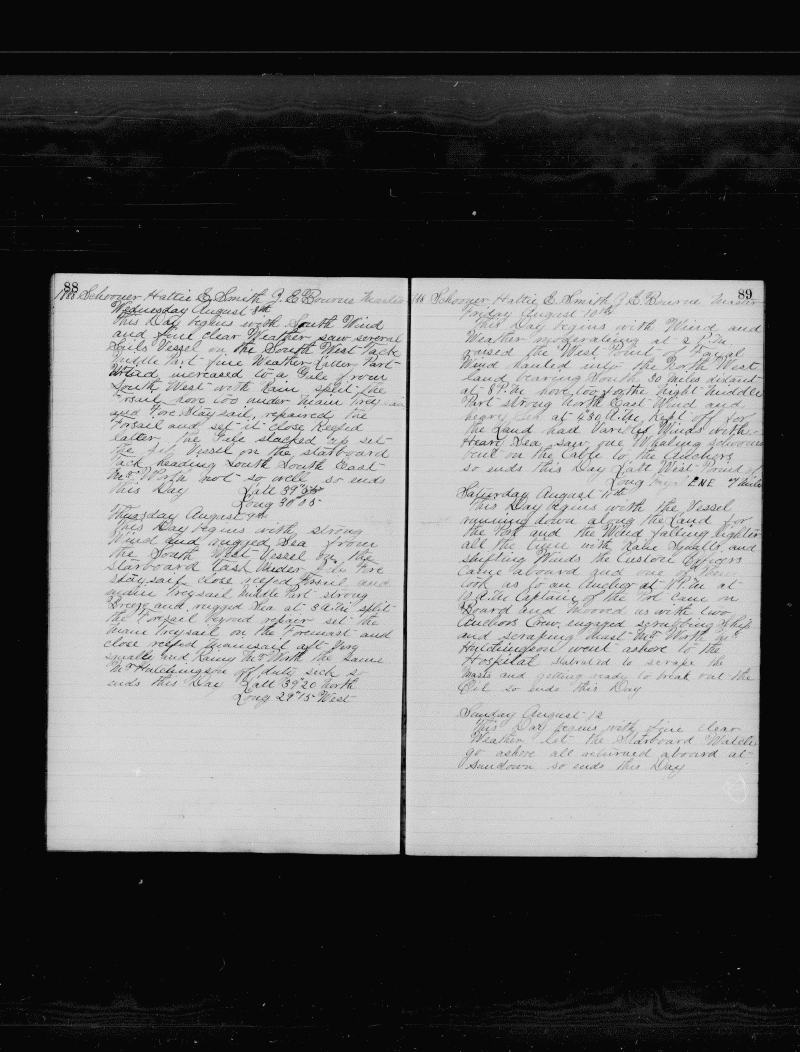 88
1888 Schooner Hattie E Smith J. E Bourne Master
Wednesday August 8th
This Day begins with South Wind
and fine clear Weather saw several
Sails Vessel on the South West Tack
Middle Part fine Weather Latter Part
Wind increased to a Gale from
South West with Rain split the
Forsail hove too under Main Trysail
and Fore Staysail, repaired the
Forsail and set it close Reefed
latter the Gale slacked up set
the Jib Vessel on the starboard
Tack heading South South East
Mr Worth not so well so ends
this Day Latt 39°
Long 30 05
Thursday August 9th
This Day begins with strong
Wind and rugged Sea from
the South West Vessel on the
starboard Tack Under Fore
staysail close reefed Forsail and
main Trysail Middle Part strong
Breeze and rugged Sea at 3 A.M. split
the Forsail beyond repair set the
main Trysail on the Foremast and
close reefed mainsail aft Very
squally and Rainy Mr Worth the same
Mr Hutchingson off duty sick so
ends this Day Latt 39°20 North
Long 29°15 West
89
Schooner Hattie E. Smith J. E Bourne Master
Friday August 10th
This Day begins with Wind and
Weather moderating at 2 P.M.
raised the West Point of Fayal
Wind hauled into the North West
land bearing South 30 miles distant
at 8 P.M. hove too for the night Middle
Part strong North East Wind and
heavy Sea at 4.30 A.M. kept off for
the Land had Variable Winds with
Heavy Sea saw one Whaling Schooner
bent on the Cable to the Anchors
so ends this Day Latt West Point of
Long Fayal ENE 7 Miles
Saturday August 11th
This Day begins with the Vessel
running down along the Land for
the Port and the Wind falling lighter
all the time with Rain Squalls and
shifting Winds the Custom Officers
came aboard and one of them
took us to an Anchor at 1 P.M. at
10 A.M. Captain of the Port came on
Board and moored us with two
Anchors Crew engaged scrubbing Ship
and scraping mast Mr Worth Mr
Hutchingson went ashore to the
Hospital started to scrape the
Masts and getting ready to break out the
Oil so ends this Day
Sunday August 12
This Day begins with fine clear
Weather let the Starboard Watch
go ashore all returned aboard at
Sundown so ends this Day